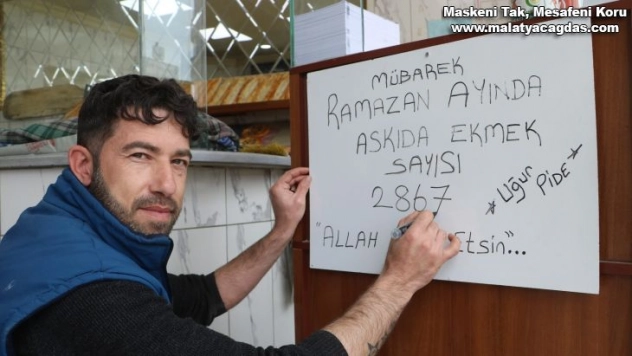 Maskeni Tak, Mesafeni Koru
www.malatyacagdas.com
MÜBAREK
RAMAZAN AYINDA
ASKIDA EKMEK
SAYISI
2867
*UĞUR PİDE*
"ALLAH Etsin..."